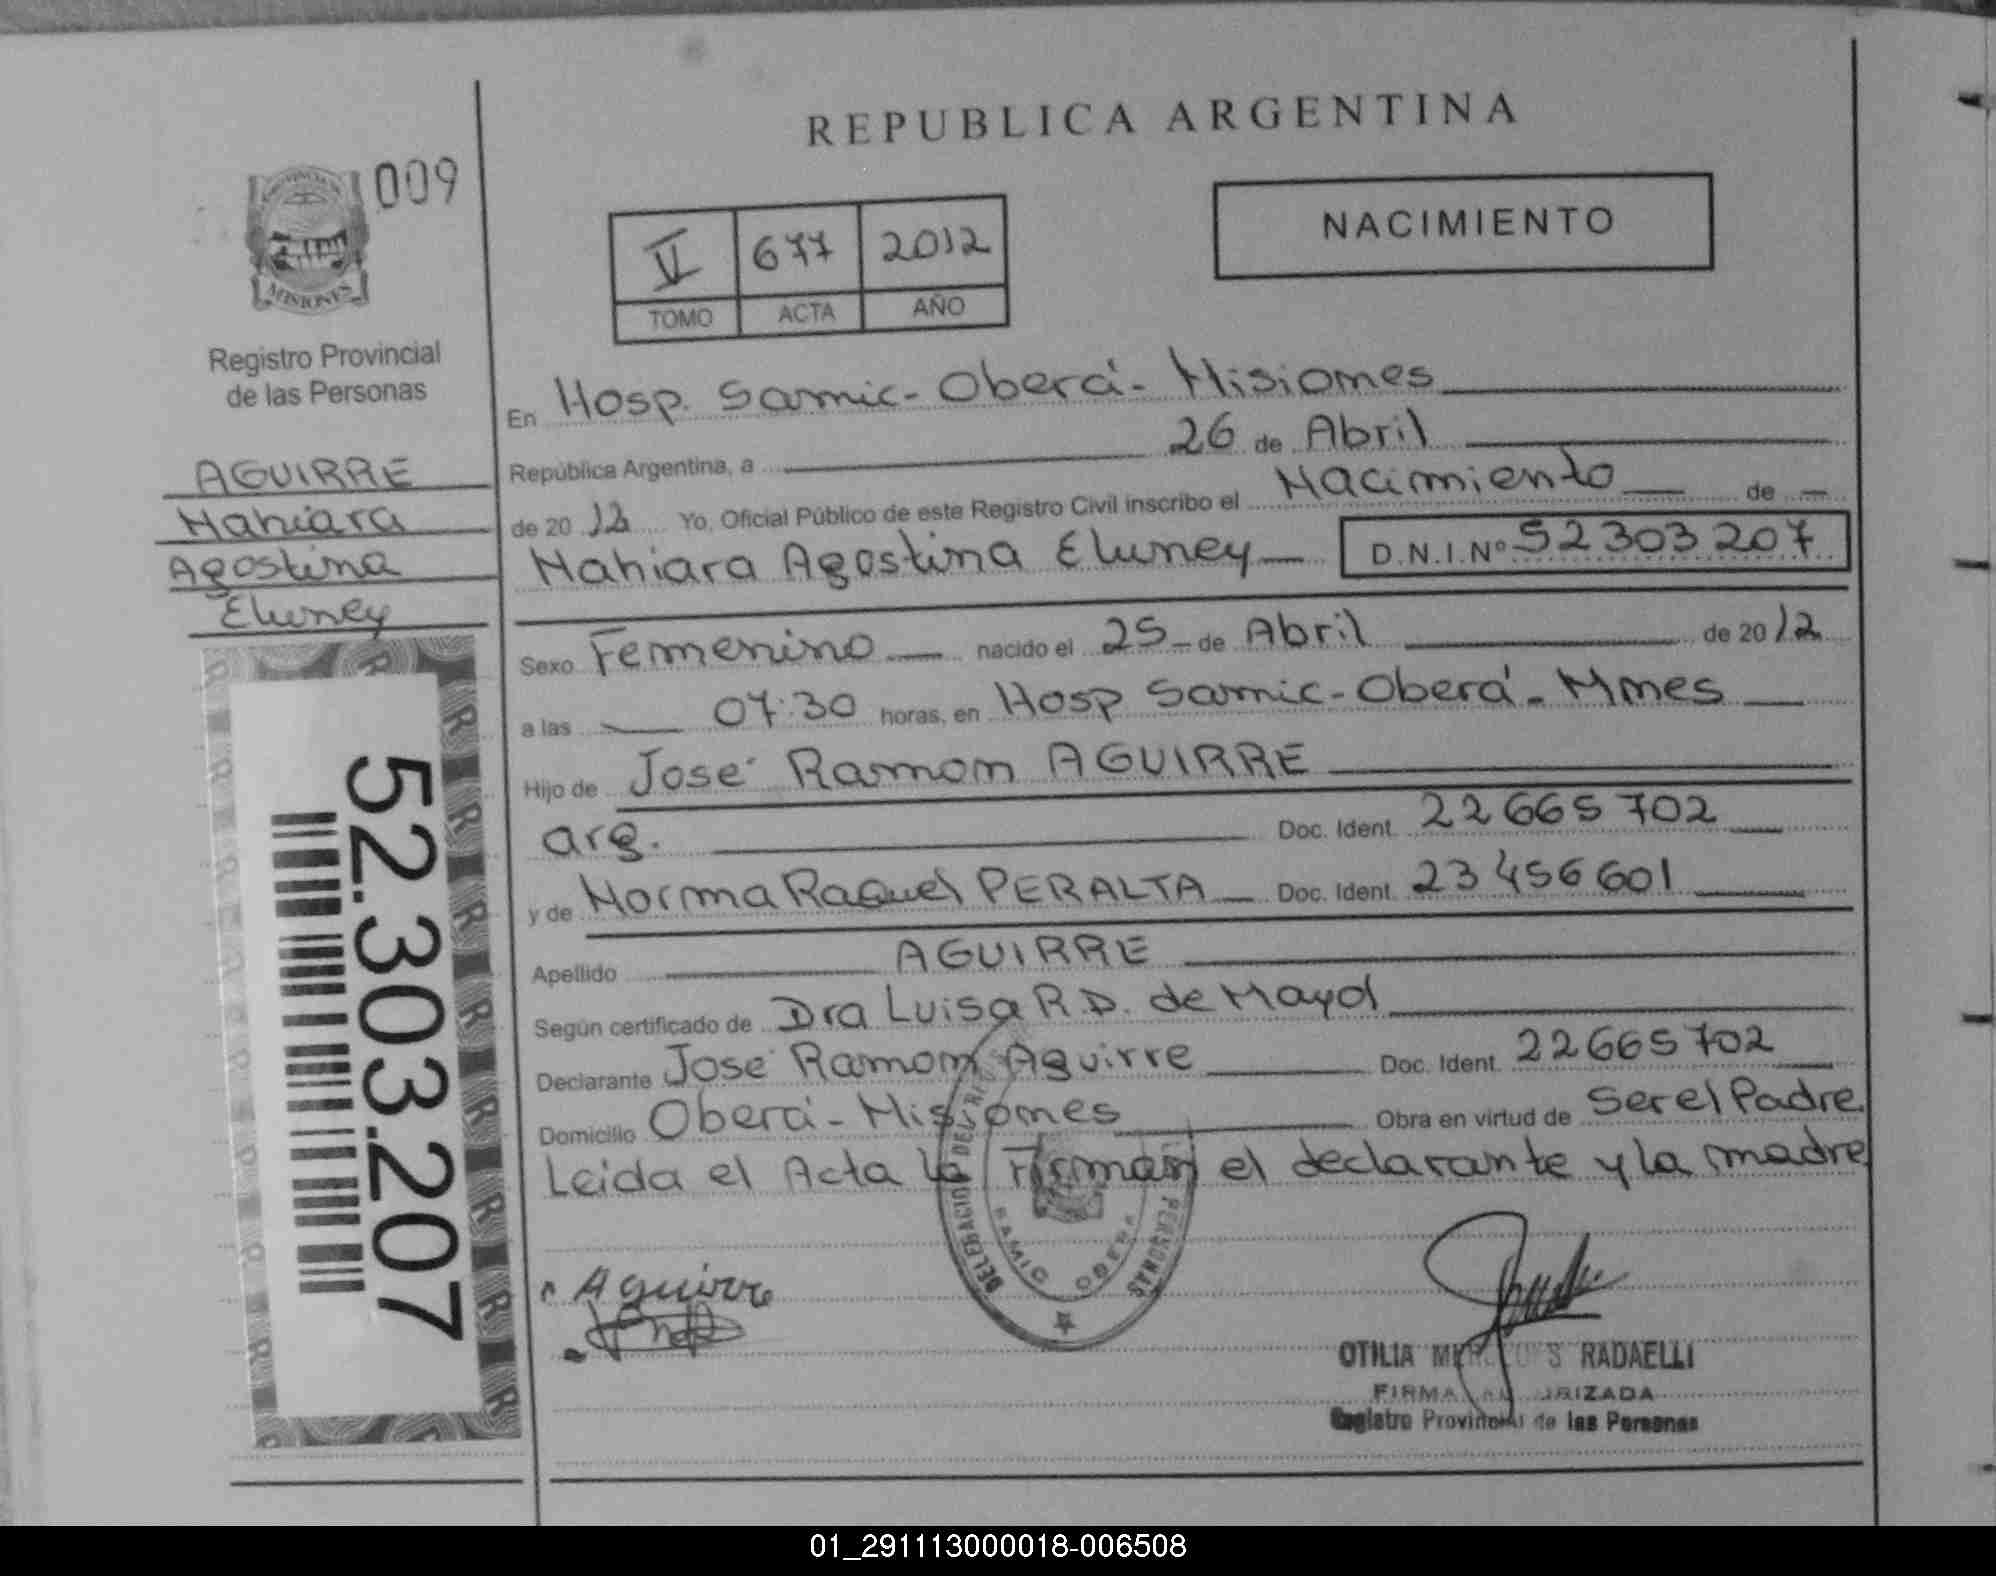 REPUBLICA ARGENTINA
009
MISIONES
Registro Provincial
de las Personas
AGUIRRE
Nahiara
Agostina
Eluney
52.303.207
V 677 2012
TOMO ACTA AÑO
NACIMIENTO
En Hosp. Samic - Oberá - Misiones
República Argentina, a 26 de Abril
de 20 12 Yo, Oficial Público de este Registro Civil inscribo el Nacimiento de
Nahiara Agostina Eluney D.N.I.Nº 52303207
Sexo Femenino nacido el 25 de Abril de 20 12
a las 07:30 horas, en Hosp Samic - Oberá - Mnes
Hijo de José Ramon AGUIRRE
arg. Doc. Ident. 22665702
y de Norma Raquel PERALTA Doc. Ident. 23456601
Apellido AGUIRRE
Según certificado de Dra Luisa R.D. de Mayol
Declarante José Ramon Aguirre Doc. Ident. 22665702
Domicilio Oberá - Misiones Obra en virtud de Ser el Padre.
Leida el Acta la Firman el declarante y la madre
DELEGACION DEL REG PERSONAS
SAMIC OBERA
Aguirre
OTILIA RADAELLI
FIRMA AUTORIZADA
Registro Provincial de las Personas
01_291113000018-006508